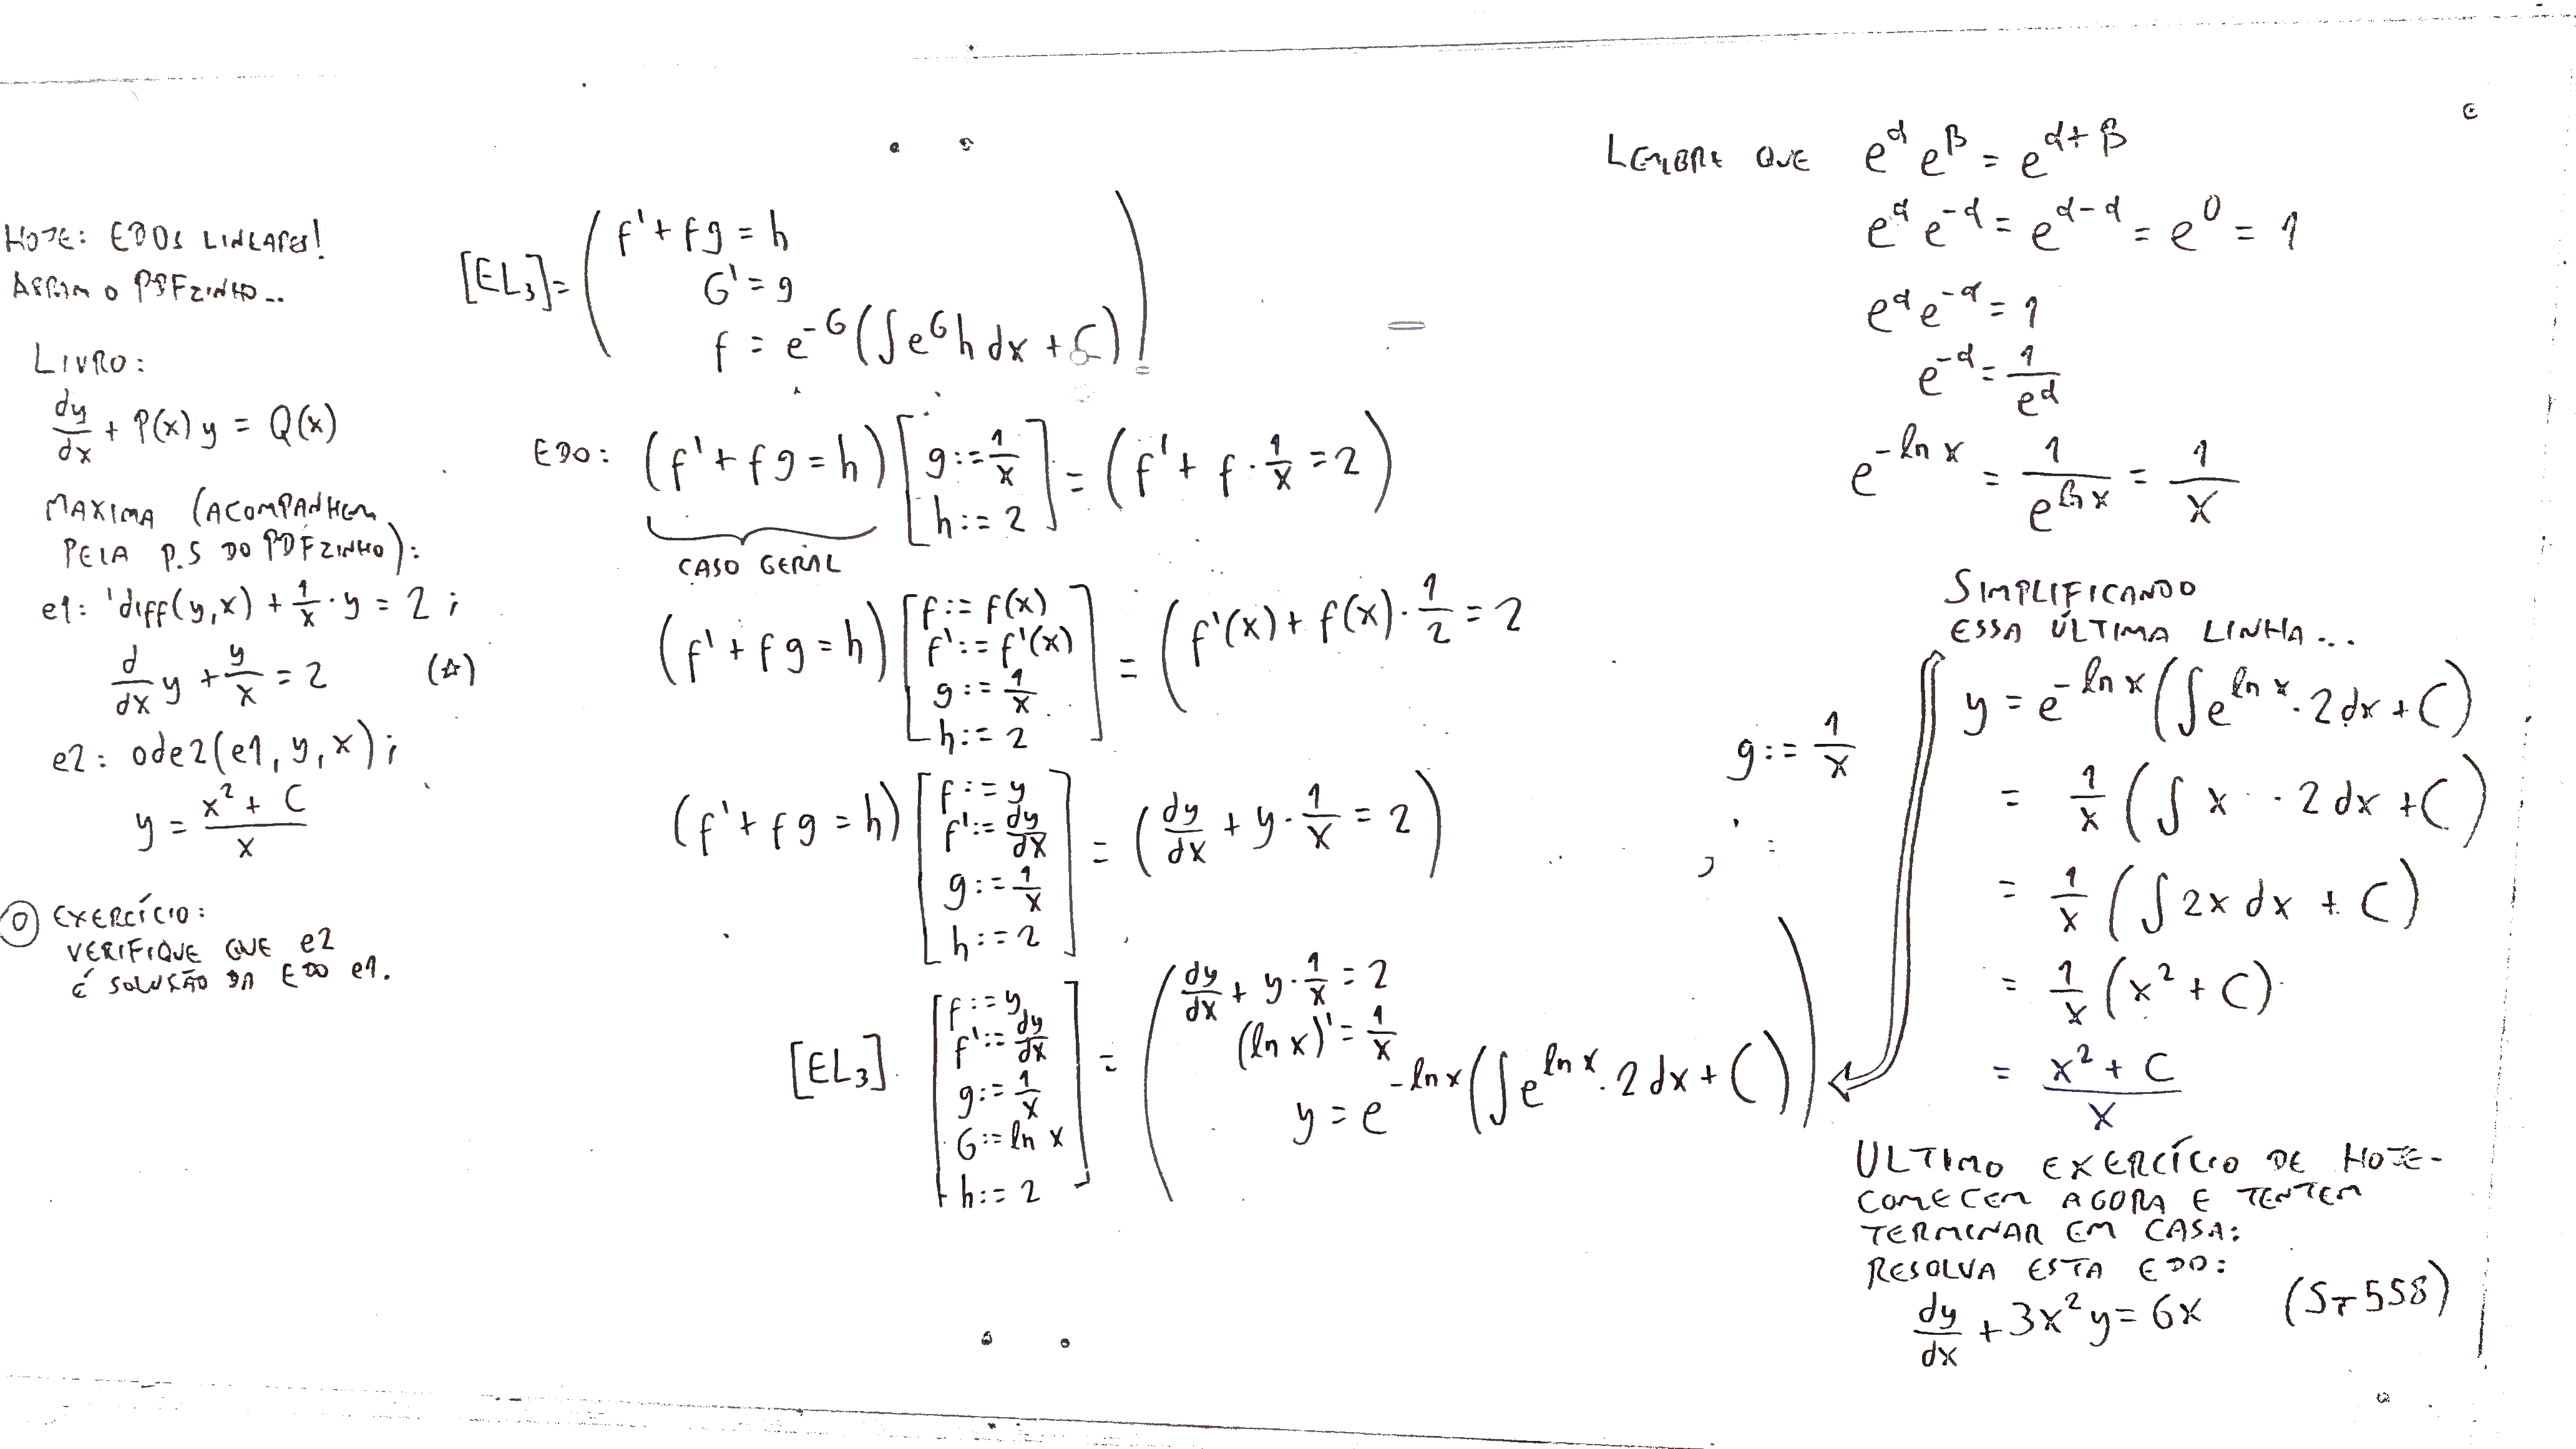 HOJE: EDOS LINEARES!
ABRAM O PDFZINHO...
LIVRO:
dy/dx + P(x) y = Q(x)
MAXIMA (ACOMPANHEM
PELA P.5 DO PDFZINHO):
e1: 'diff(y,x) + 1/x · y = 2 ;
d/dx y + y/x = 2 (☆)
e2: ode2(e1, y, x);
y = (x² + C)/x
⓪ EXERCÍCIO:
VERIFIQUE QUE e2
É SOLUÇÃO DA EDO e1.
[EL₃] = ( f' + fg = h
G' = g
f = e^-G (∫e^G h dx + C) )
EDO: (f' + fg = h) [g := 1/x
h := 2] = (f' + f · 1/x = 2)
CASO GERAL
(f' + fg = h) [f := f(x)
f' := f'(x)
g := 1/x
h := 2] = (f'(x) + f(x) · 1/2 = 2
(f' + fg = h) [f := y
f' := dy/dx
g := 1/x
h := 2] = (dy/dx + y · 1/x = 2)
[EL₃] [f := y
f' := dy/dx
g := 1/x
G := ln x
h := 2] = ( dy/dx + y · 1/x = 2
(ln x)' = 1/x
y = e^-ln x (∫e^ln x · 2 dx + C) )
g := 1/x
LEMBRE QUE e^α e^β = e^α+β
e^α e^-α = e^α-α = e^0 = 1
e^α e^-α = 1
e^-α = 1/e^α
e^-ln x = 1/e^ln x = 1/x
SIMPLIFICANDO
ESSA ÚLTIMA LINHA...
y = e^-ln x (∫e^ln x · 2 dx + C)
= 1/x (∫ x · 2 dx + C)
= 1/x (∫ 2x dx + C)
= 1/x (x² + C)
= (x² + C)/x
ULTIMO EXERCÍCIO DE HOJE -
COMECEM AGORA E TENTEM
TERMINAR EM CASA:
RESOLVA ESTA EDO:
dy/dx + 3x² y = 6x (ST 558)